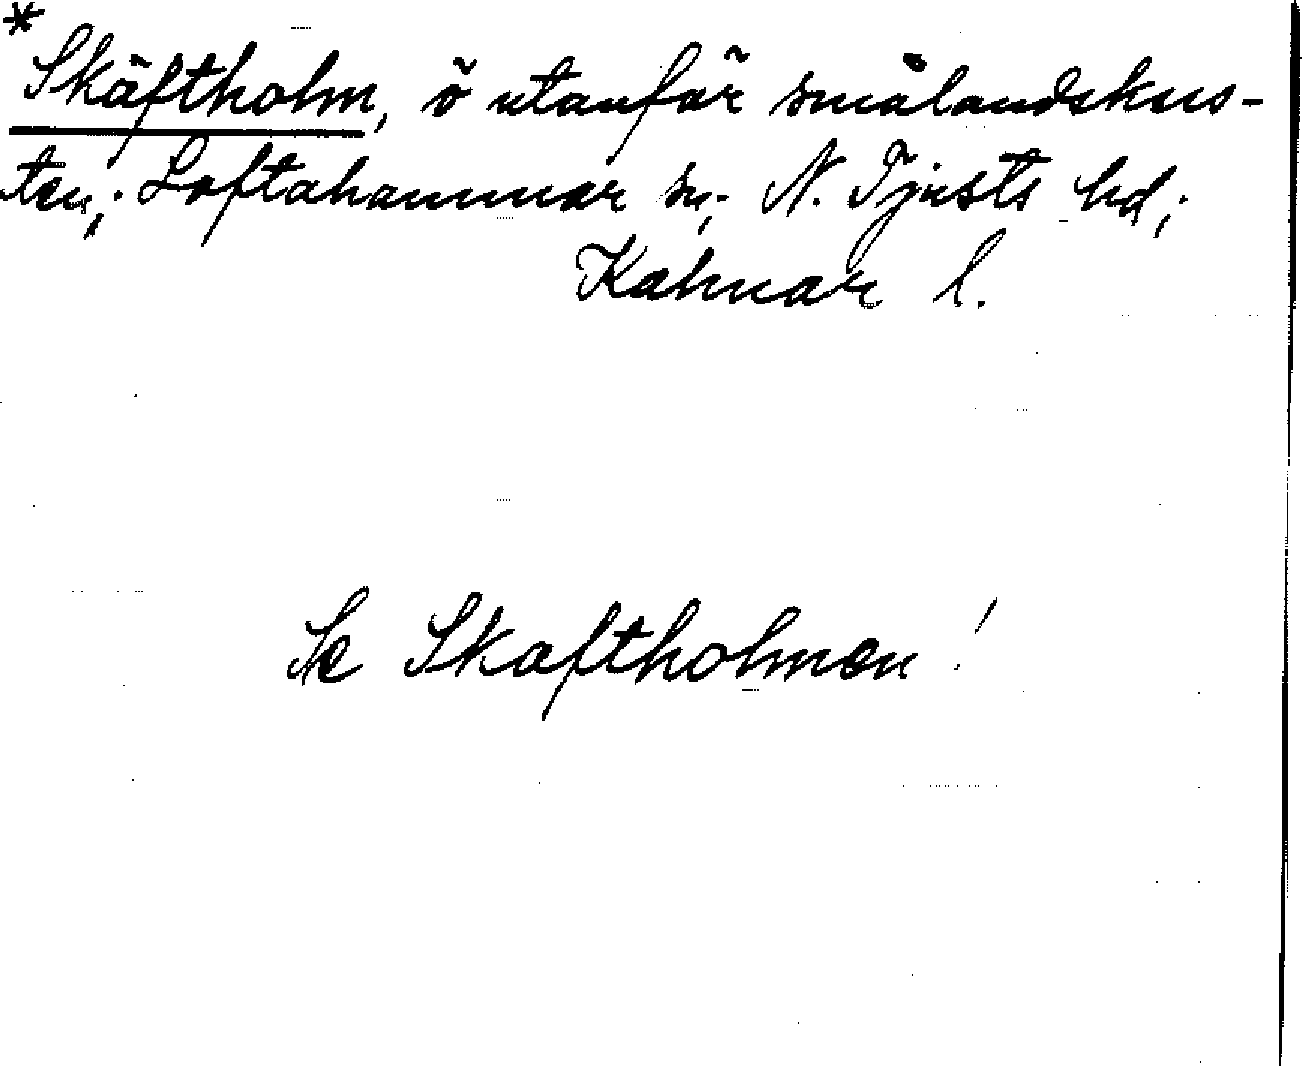 * Skäftholm, ö utanför smålandskus-
ten; Loftahammar sn; N. Tjusts hd;
Kalmar l.
Se Skaftholmen!